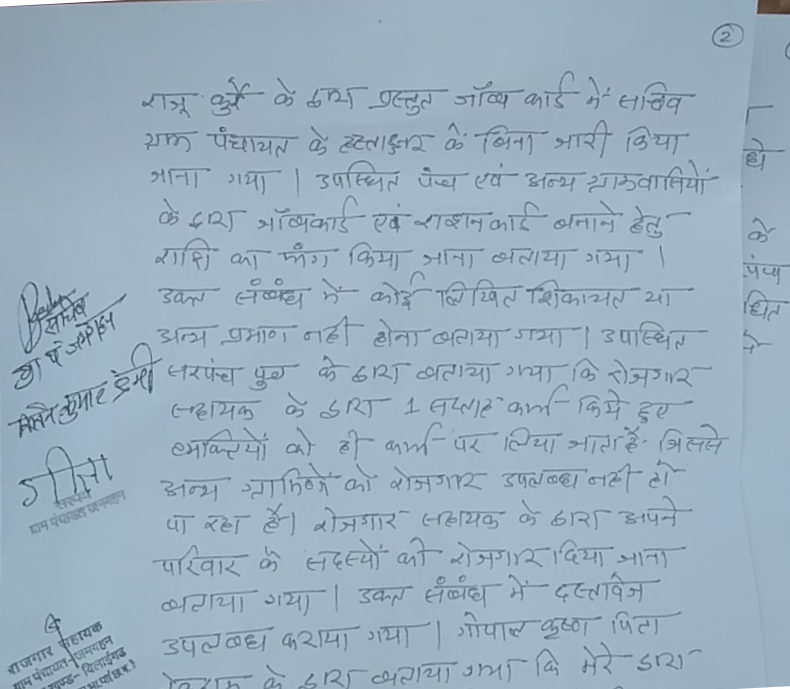 2
राजू कुर्रे के द्वारा प्रस्तुत जॉब कार्ड में सचिव
ग्राम पंचायत के हस्ताक्षर के बिना जारी किया
जाना गया । उपस्थित पंच एवं अन्य ग्रामवासियों
के द्वारा जॉबकार्ड एवं राशनकार्ड बनाने हेतु
राशि का मांग किया जाना बताया गया ।
उक्त संबंध में कोई लिखित शिकायत या
अन्य प्रमाण नही होना बताया गया । उपस्थित
सरपंच पुत्र के द्वारा बताया गया कि रोजगार
सहायक के द्वारा 1 सप्ताह कार्य किये हुए
व्यक्तियों को ही कार्य पर लिया जाता है जिससे
अन्य ग्रामिणों को रोजगार उपलब्ध नही हो
पा रहा है। रोजगार सहायक के द्वारा अपने
परिवार के सदस्यों को रोजगार दिया जाना
बताया गया । उक्त संबंध में दस्तावेज
उपलब्ध कराया गया । गोपाल कृष्ण पिता
के द्वारा बताया गया कि मेरे द्वारा
सचिव
ग्रा पं
कुमार प्रेमी
गीता
सरपंच
ग्राम पंचायत जमगहन
रोजगार सहायक
ग्राम पंचायत-जमगहन
खण्ड- बिलाईगढ़
के